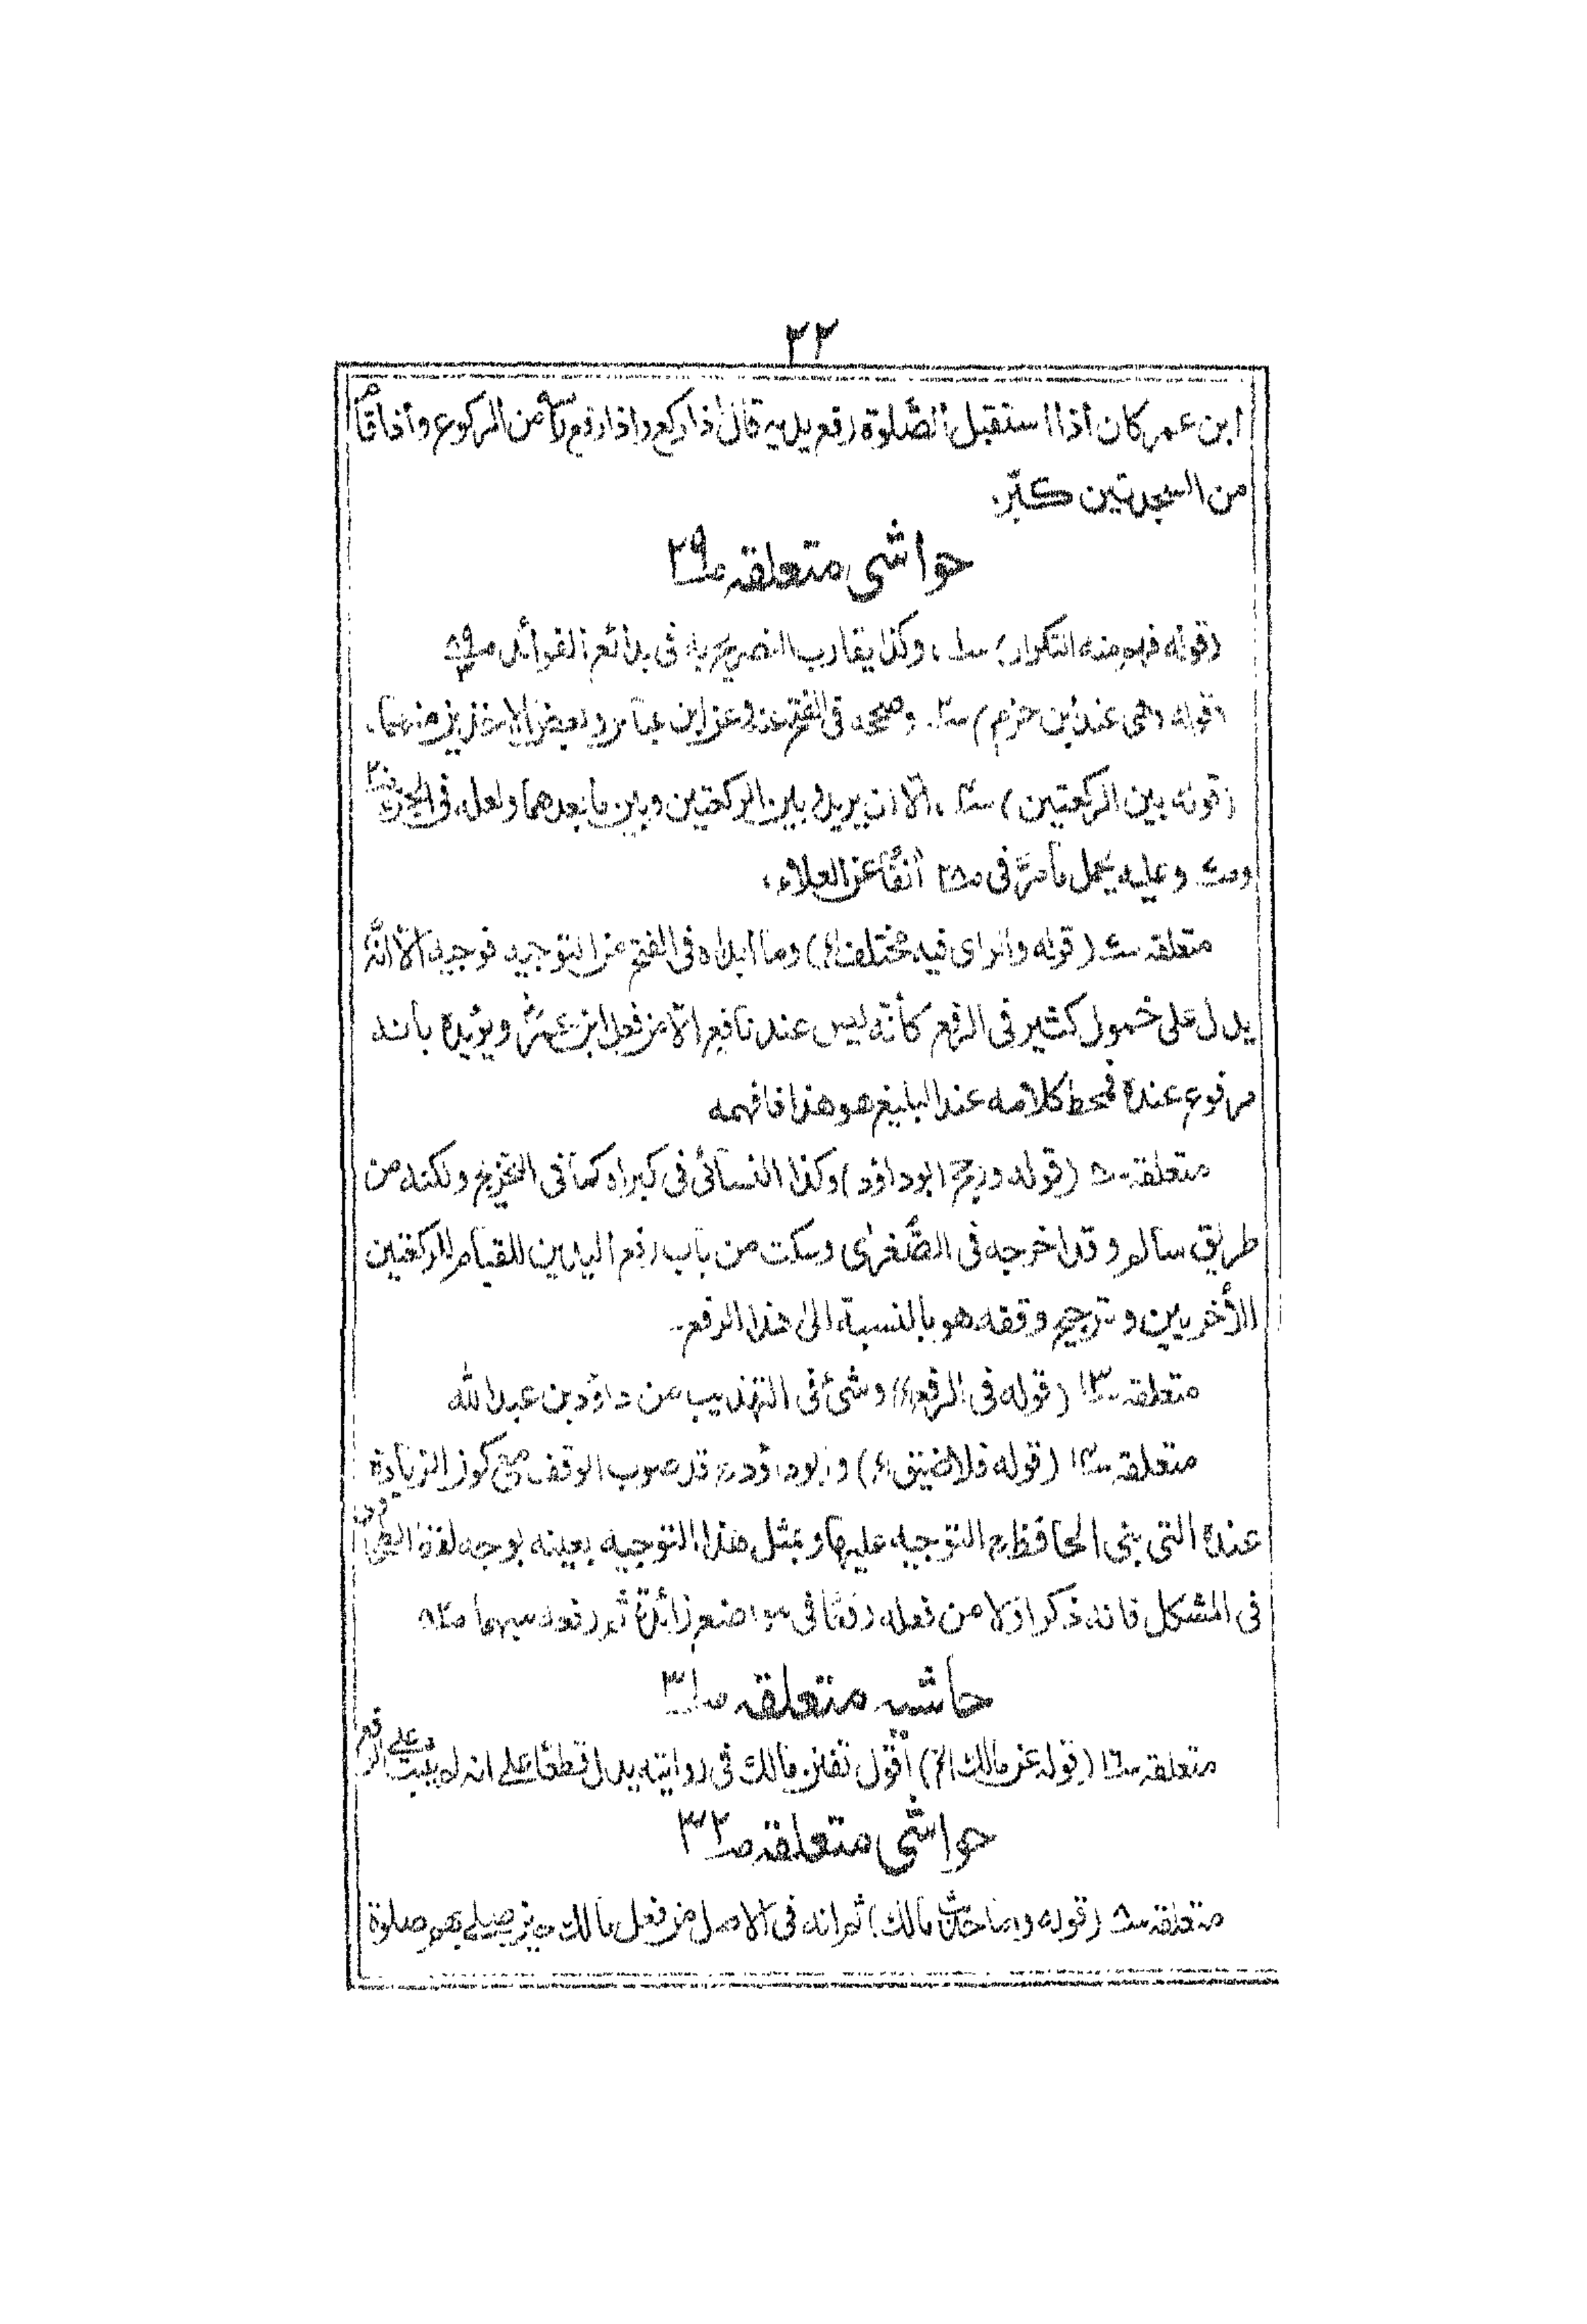 ٣٢
ابن عمر كان اذا استقبل الصّلوة رفع يديه قال اذا ركع واذا رفع رأسه من الركوع واذا قام
من السجدتين كبّر.
حواشى متعلقه صـ٢٩
(قوله فهم منه التكرار) سـ١، وكذا يقارب التصريح به فى بدائع الفوائد صـ
(قوله وهى عند ابن حزم) سـ٢. وصححه فى الفتح عنه وعن ابن عباس وبعض الاسناد
(قوله بين الركعتين) سـ٣، الا ان يريد بين الركعتين وبين ما بعدهما ولعل فى الجزء
وصـ وعليه يحمل ما مرّ فى صـ٢٨ آنفًا عن العلاء،
متعلقه سـ (قوله والراى فيه مختلف الخ) وما ابداه فى الفتح من التوجيه فوجيه الا انّه
يدل على خمول كثير فى الرفع كأنّه ليس عند نافع الا من فعل ابن عمرؓ ويؤيده بانه
مرفوع عنده فمحط كلامه عند البليغ هو هذا فافهمه
متعلقه سـ٥ (قوله ورجح ابوداؤد) وكذا النسائى فى كبراه كما فى التخريج ولكنه من
طريق سالم وقد اخرجه فى الصّغرىٰ وسكت من باب رفع اليدين للقيام للركعتين
الأخريين وترجيح وقفه هو بالنسبة الى هذا الرفع۔
متعلقه سـ١٣ (قوله فى الرفع الخ) وشئ فى التهذيب من داؤد بن عبد الله
متعلقه سـ١٤ (قوله فلا ضيق الخ) وابوداؤدؒ قد صوب الوقف مع كون الزيادة
عنده التى بنى الحافظؒ التوجيه عليها وبمثل هذا التوجيه بعينه يوجه لفظ الطحاوى
فى المشكل فانه ذكر اوّلا من فعله رفعًا فى مواضع زائدة ثم رفعه
حاشيه متعلقه صـ٣١
متعلقه سـ١٦ (قوله عن مالك الخ) أقول تفنن مالك فى روايته يدل قطعًا على انه لم يثبت على الرفع
حواشى متعلقه صـ٣٢
متعلقه سـ٨ (قوله واما حديث مالك) ثم انه فى الاصل من فعل مالك حين يصلے بهم صلوة